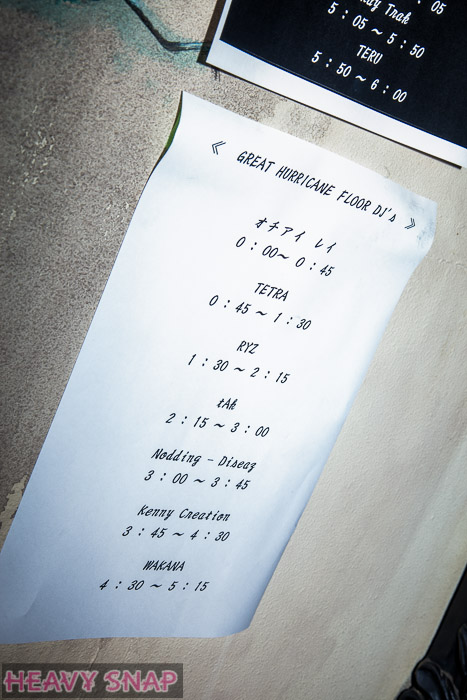 05
Trak
5 : 05 ~ 5 : 50
TERU
5 : 50 ~ 6 : 00
《 GREAT HURRICANE FLOOR DJ's 》
オチアイ レイ
0 : 00 ~ 0 : 45
TETRA
0 : 45 ~ 1 : 30
RYZ
1 : 30 ~ 2 : 15
tAk
2 : 15 ~ 3 : 00
Nodding - Diseaz
3 : 00 ~ 3 : 45
Kenny Creation
3 : 45 ~ 4 : 30
WAKANA
4 : 30 ~ 5 : 15
HEAVY SNAP